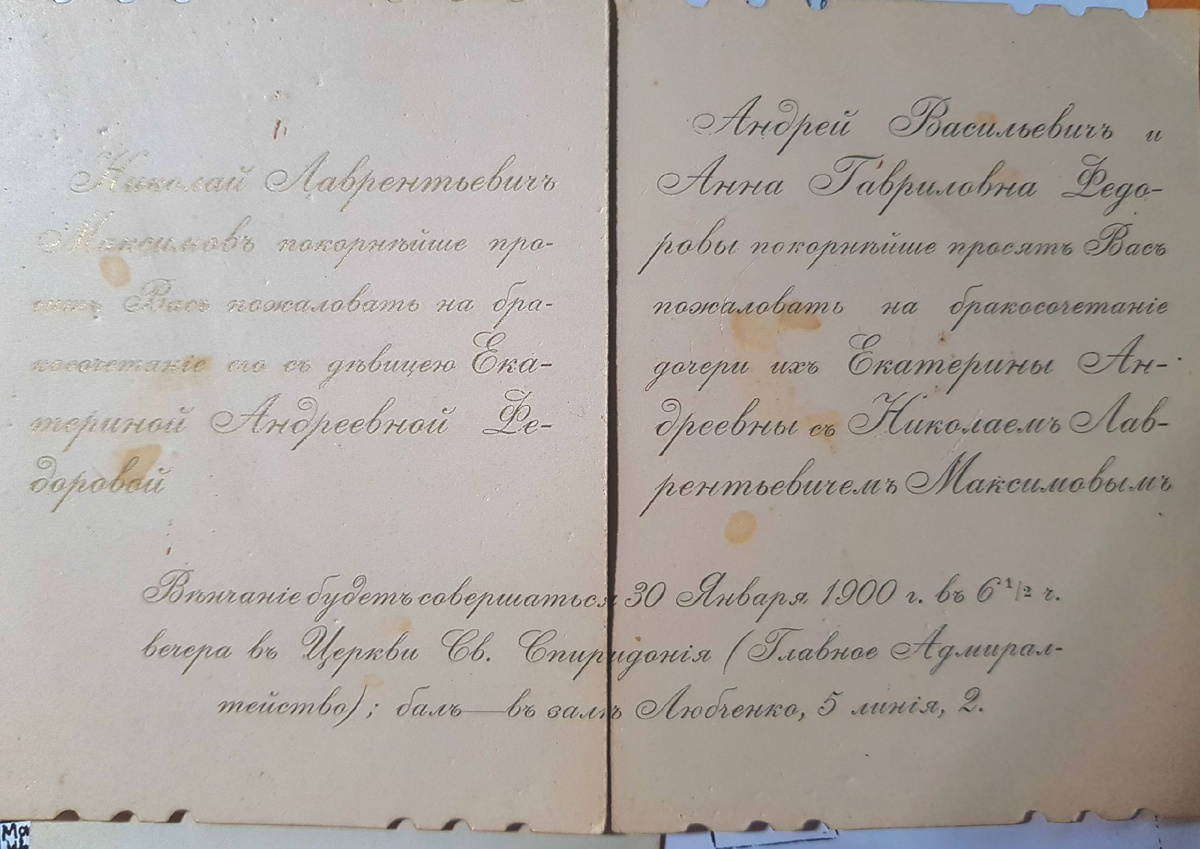 Николай Лаврентьевичъ
Максимовъ покорнѣйше про-
ситъ Васъ пожаловать на бра-
косочетаніе его съ дѣвицею Ека-
териной Андреевной Фе-
доровой
Андрей Васильевичъ и
Анна Гавриловна Федо-
ровы покорнѣйше просятъ Васъ
пожаловать на бракосочетаніе
дочери ихъ Екатерины Ан-
дреевны съ Николаемъ Лав-
рентьевичемъ Максимовымъ
Вѣнчаніе будетъ совершаться 30 Января 1900 г. въ 6 1/2 ч.
вечера въ Церкви Св. Спиридонія (Главное Адмирал-
тейство); балъ—въ залѣ Любченко, 5 линія, 2.